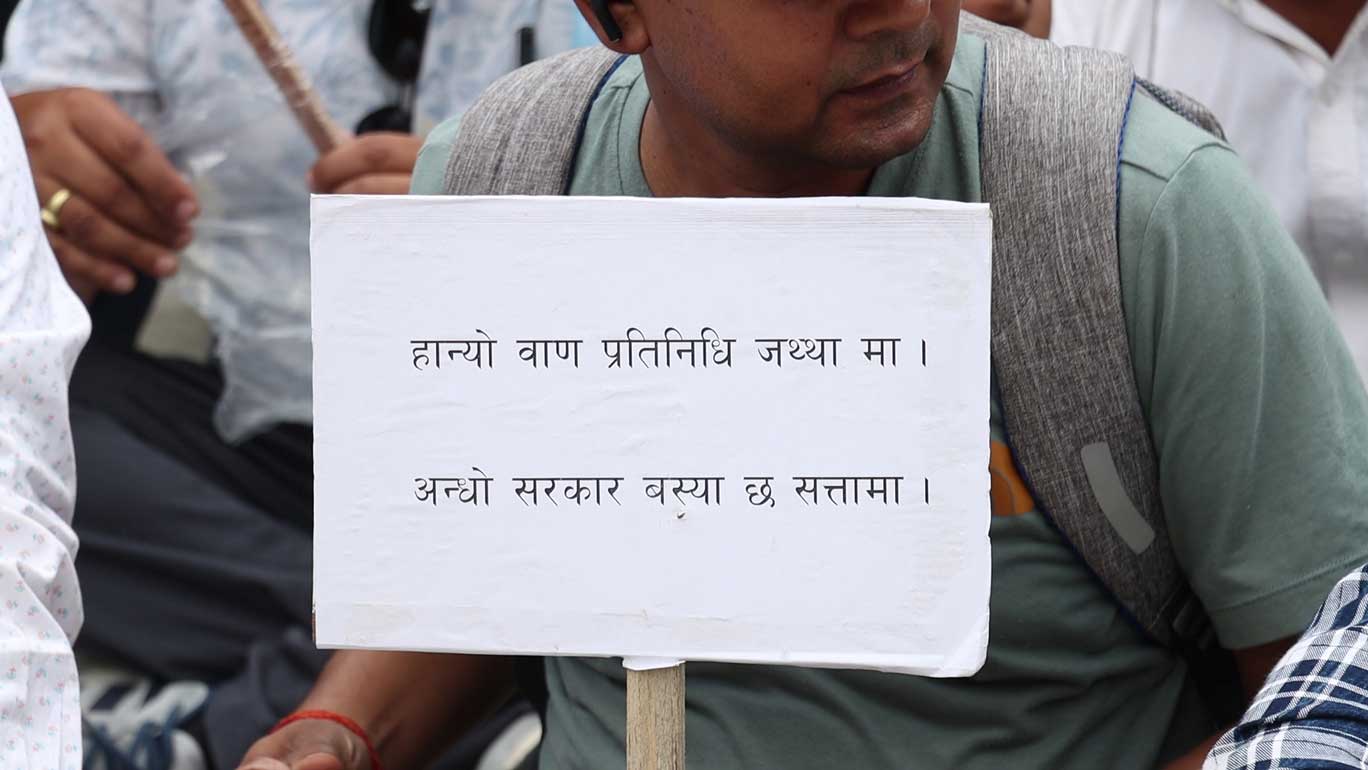 हान्यो वाण प्रतिनिधि जथ्था मा ।
अन्धो सरकार बस्या छ सत्तामा ।